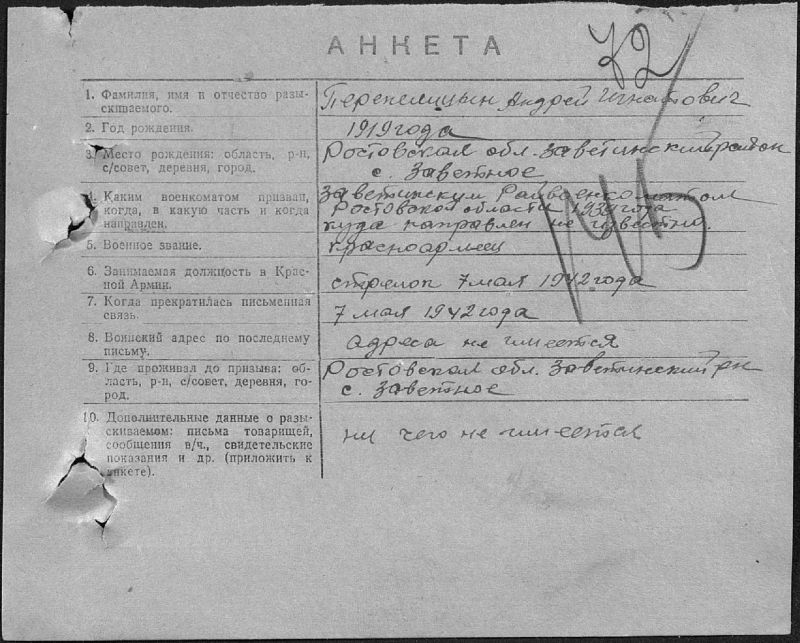 72
АНКЕТА
1. Фамилия, имя и отчество разы-
скиваемого.
Перепелицын Андрей Игнатович
2. Год рождения.
1919 года
3. Место рождения: область, р-н,
с/совет, деревня, город.
Ростовская обл. Заветинский район
с. Заветное
4. Каким военкоматом призван,
когда, в какую часть и когда
направлен.
Заветинским Райвоенкоматом
Ростовской области 1939 года
куда направлен не известно.
5. Военное звание.
красноармеец
6. Занимаемая должность в Крас-
ной Армии.
стрелок 7 мая 1942 года
7. Когда прекратилась письменная
связь.
7 мая 1942 года
8. Воинский адрес по последнему
письму.
адреса не имеется
9. Где проживал до призыва: об-
ласть, р-н, с/совет, деревня, го-
род.
Ростовская обл. Заветинский рн
с. Заветное
10. Дополнительные данные о разы-
скиваемом: письма товарищей,
сообщения в/ч., свидетельские
показания и др. (приложить к
анкете).
ни чего не имеется